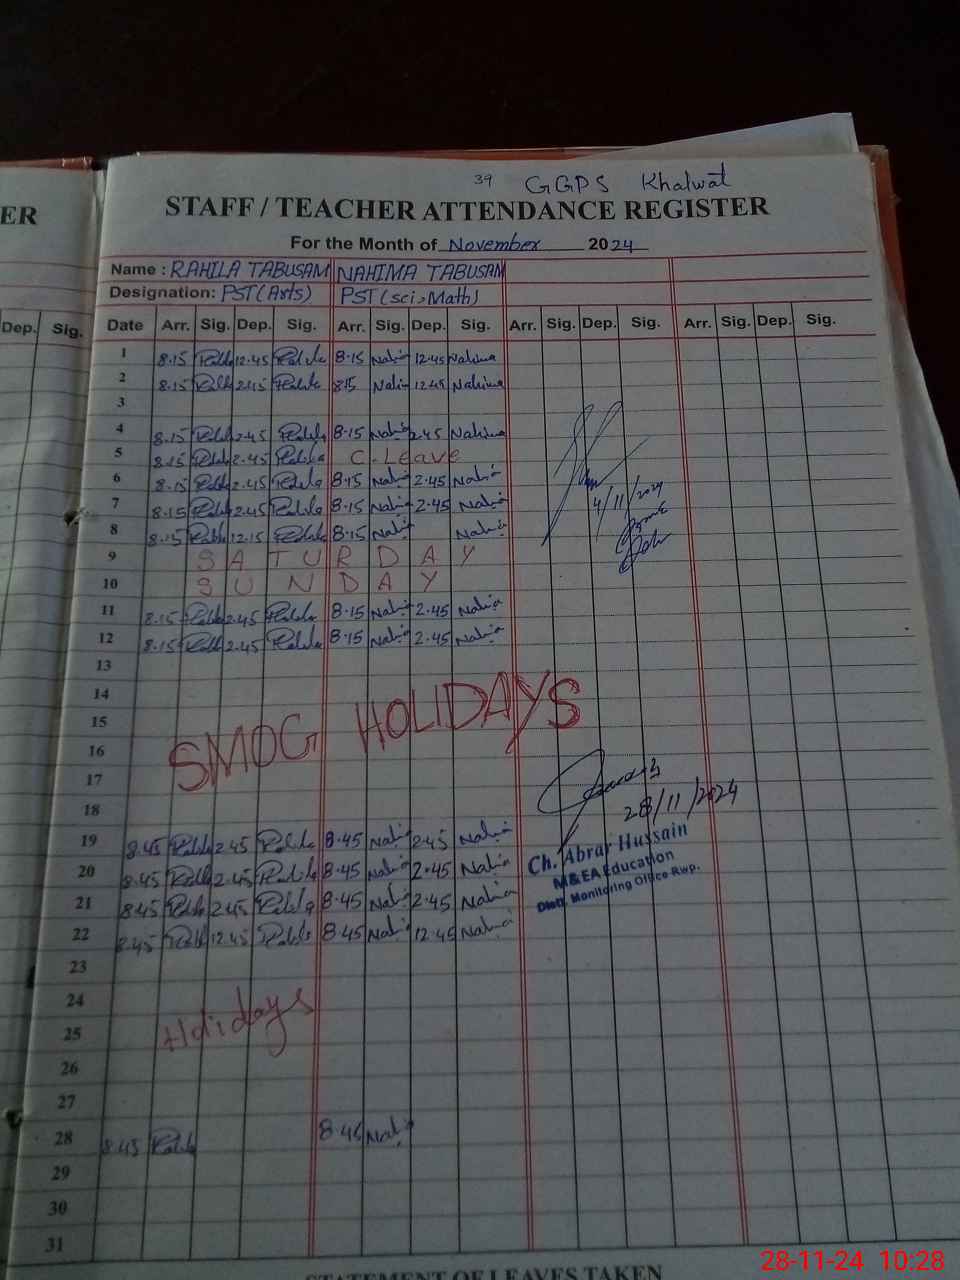 39 GGPS Khalwat
ER
STAFF / TEACHER ATTENDANCE REGISTER
For the Month of November 2024
Name : RAHILA TABUSAM NAHIMA TABUSAM
Designation: PST(Arts) PST(sci,Math)
Dep. Sig. Date Arr. Sig. Dep. Sig. Arr. Sig. Dep. Sig. Arr. Sig. Dep. Sig. Arr. Sig. Dep. Sig.
1 8.15 12.45 Rahila 8.15 Nahi 12.45 Nahima
2 8.15 12.15 Rahila 8.15 Nahi 12.45 Nahima
3
4 8.15 2.45 Rahila 8.15 Nahi 2.45 Nahima
5 8.15 2.45 Rahila C.Leave
6 8.15 2.45 Rahila 8.15 Nahi 2.45 Nahi
7 8.15 2.45 Rahila 8.15 Nahi 2.45 Nahi
4/11/2024
8 8.15 12.15 Rahila 8.15 Nahi Nahi
9 SATURDAY
10 SUNDAY
11 8.15 2.45 Rahila 8.15 Nahi 2.45 Nahi
12 8.15 2.45 Rahila 8.15 Nahi 2.45 Nahi
13
14
15
SMOG HOLIDAYS
16
17
18
28/11/2024
19 8.45 Rahila 2.45 Rahila 8.45 Nahi 2.45 Nahi
Ch. Abrar Hussain
20 8.45 2.45 Rahila 8.45 Nahi 2.45 Nahi
M&EA Education
21 8.45 2.45 Rahila 8.45 Nahi 2.45 Nahi
Distt. Monitoring Office Rwp.
22 8.45 12.45 Rahila 8.45 Nahi 12.45 Nahi
23
24
Holidays
25
26
27
28 8.45 Rahila 8.45 Nahi
29
30
31
STATEMENT OF LEAVES TAKEN
28-11-24 10:28